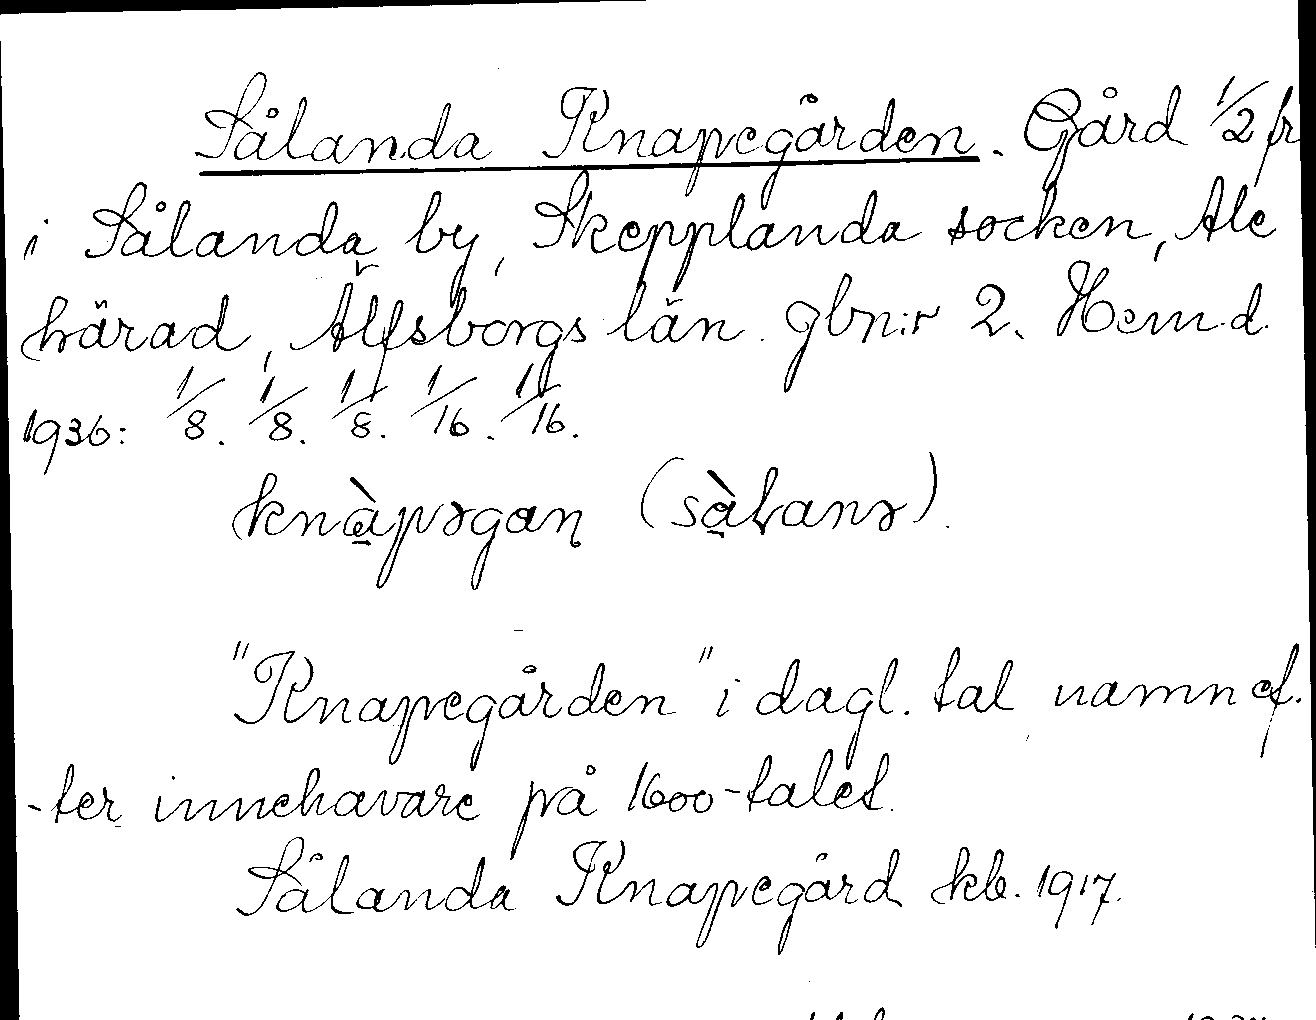 Sålanda Knapegården. Gård 1/2 fr
i Sålanda by, Skepplanda socken, Ale
härad, Älfsborgs län. gbn:r 2. Hem.d.
1936: 1/8. 1/8. 1/8. 1/16. 1/16.
knàpəgaɳ (sàɽanə).
"Knapegården" i dagl. tal namn ef-
-ter innehavare på 1600-talet.
Sålanda Knapegård kb. 1917.